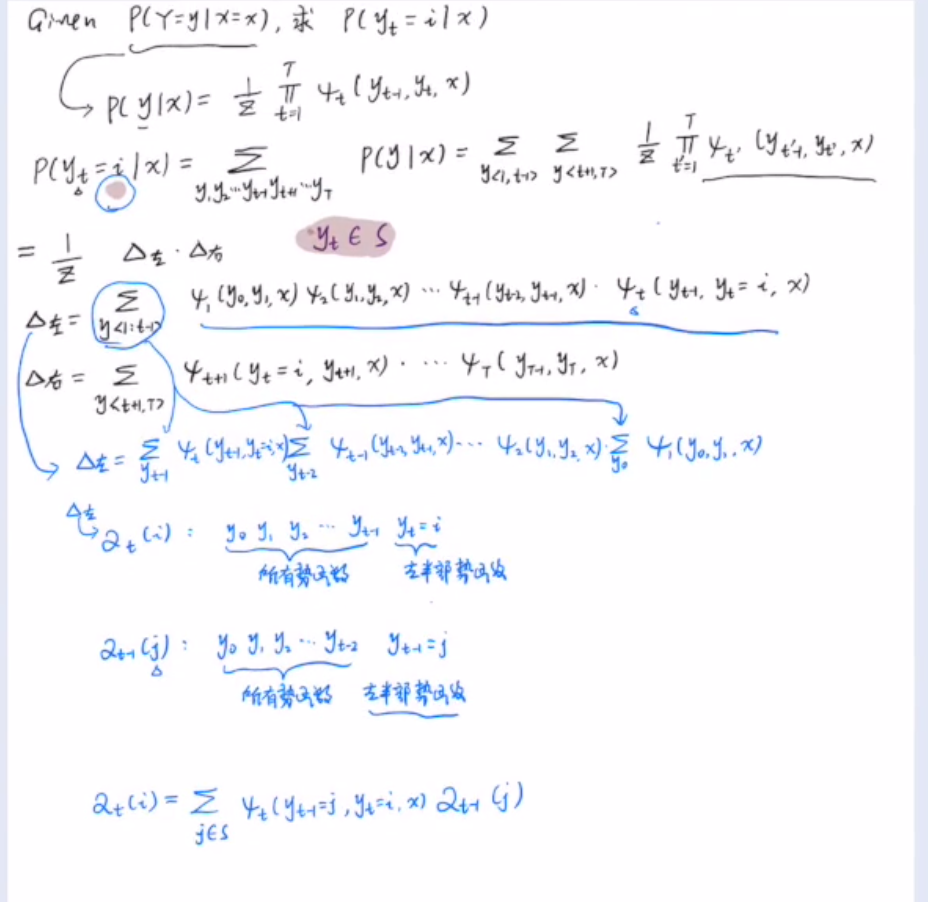 Given P(Y=y|X=x), 求 P(y_t=i|x)
P(y|x) = 1/Z ∏_{t=1}^{T} ψ_t(y_{t-1}, y_t, x)
P(y_t=i|x) = Σ_{y_1,y_2…y_{t-1}y_{t+1}…y_T} P(y|x) = Σ_{y<1,t-1>} Σ_{y<t+1,T>} 1/Z ∏_{t'=1}^{T} ψ_{t'}(y_{t'-1}, y_{t'}, x)
= 1/Z Δ左·Δ右 y_t ∈ S
Δ左 = Σ_{y<1:t-1>} ψ_1(y_0,y_1,x) ψ_2(y_1,y_2,x) … ψ_{t-1}(y_{t-2},y_{t-1},x)·ψ_t(y_{t-1}, y_t=i, x)
Δ右 = Σ_{y<t+1,T>} ψ_{t+1}(y_t=i, y_{t+1}, x)·…ψ_T(y_{T-1}, y_T, x)
Δ左 = Σ_{y_{t-1}} ψ_t(y_{t-1},y_t=i,x) Σ_{y_{t-2}} ψ_{t-1}(y_{t-2},y_{t-1},x)… ψ_2(y_1,y_2,x)·Σ_{y_0} ψ_1(y_0,y_1,x)
Δ左
α_t(i): y_0 y_1 y_2 … y_{t-1} y_t=i
所有势函数 左半部势函数
α_{t-1}(j): y_0 y_1 y_2 … y_{t-2} y_{t-1}=j
所有势函数 左半部势函数
α_t(i) = Σ_{j∈S} ψ_t(y_{t-1}=j, y_t=i, x) α_{t-1}(j)